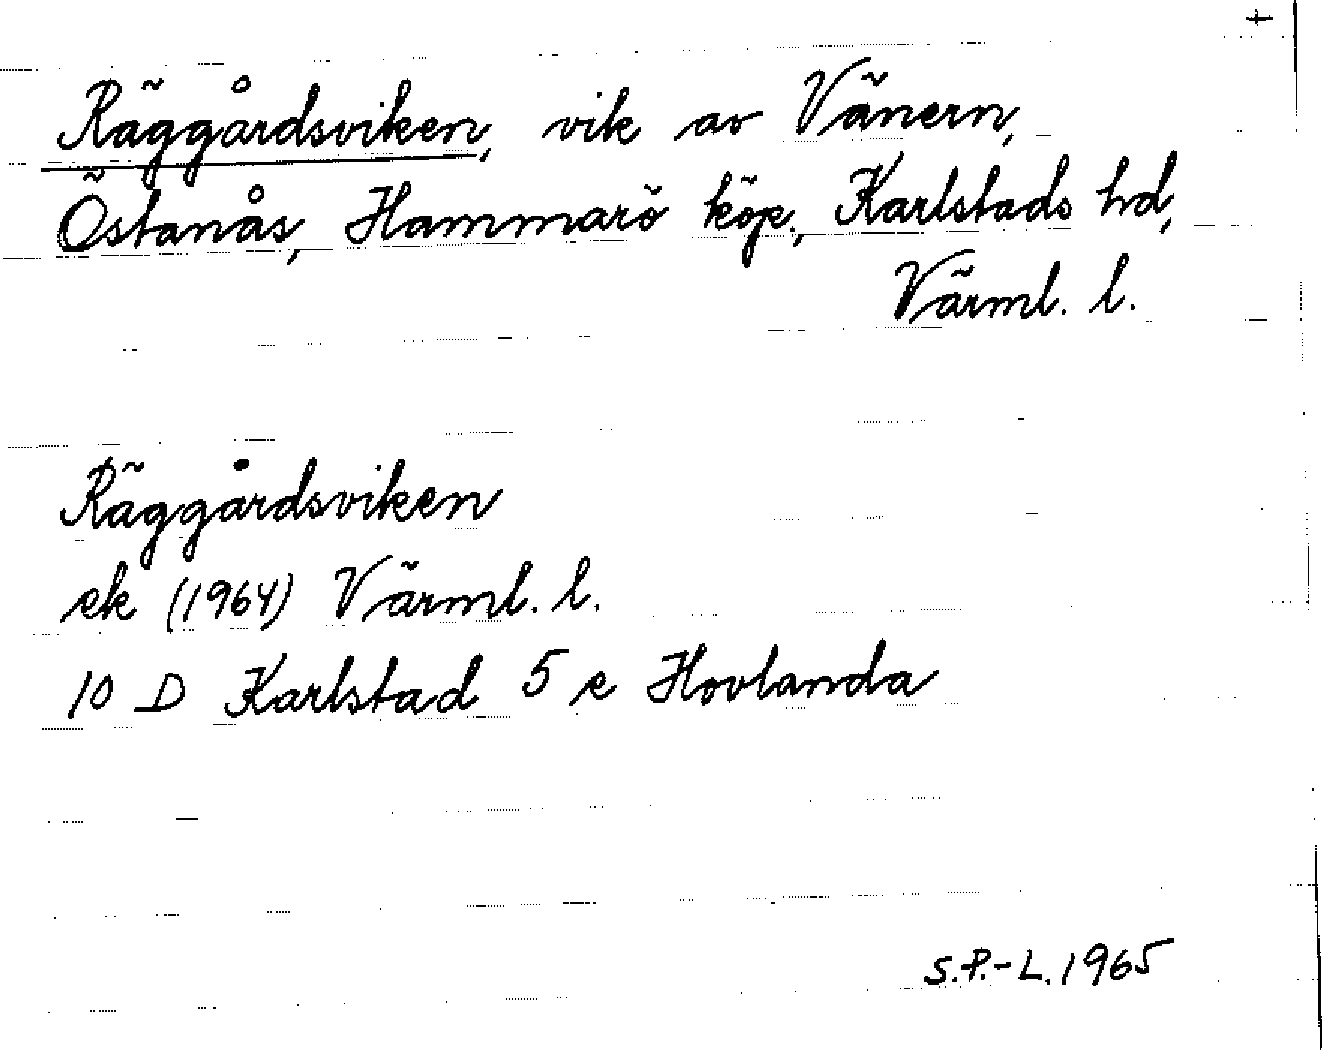 Räggårdsviken, vik av Vänern,
Östanås, Hammarö köp., Karlstads hd,
Värml. l.
Räggårdsviken
ek (1964) Värml. l.
10 D Karlstad 5 e Hovlanda
S.P.-L. 1965